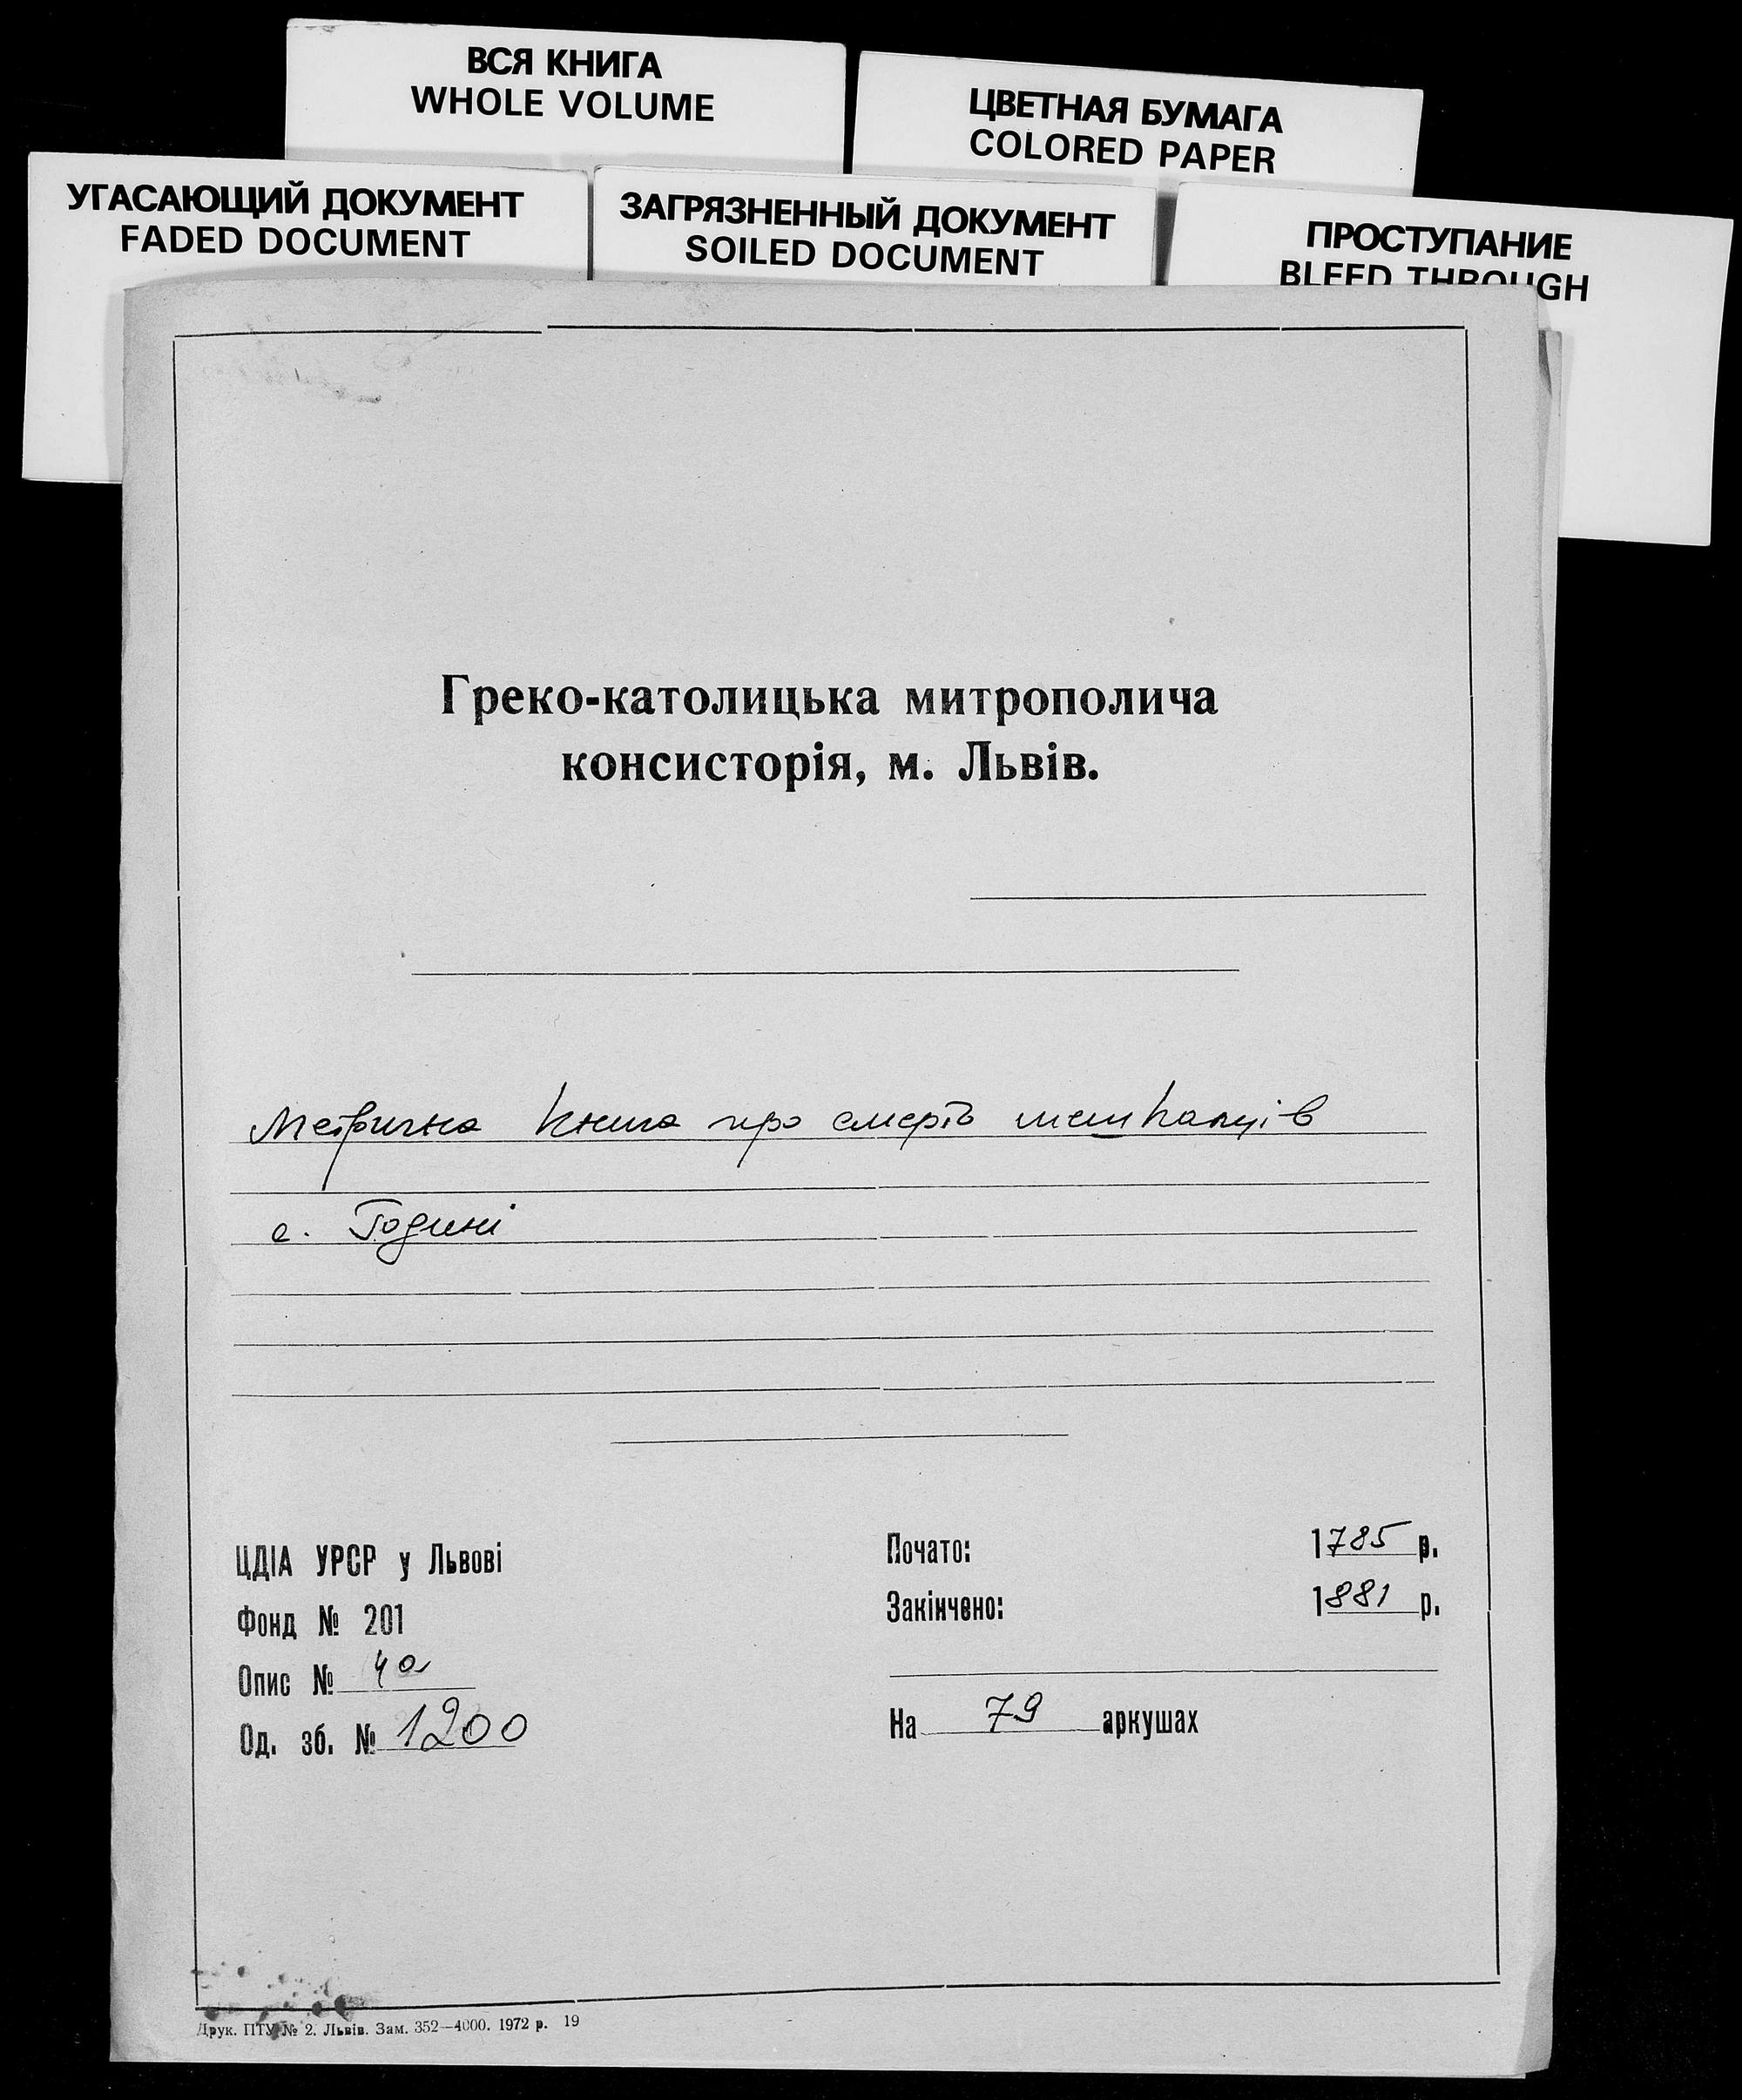 ВСЯ КНИГА
WHOLE VOLUME
ЦВЕТНАЯ БУМАГА
COLORED PAPER
УГАСАЮЩИЙ ДОКУМЕНТ
FADED DOCUMENT
ЗАГРЯЗНЕННЫЙ ДОКУМЕНТ
SOILED DOCUMENT
ПРОСТУПАНИЕ
BLEED THROUGH
Греко-католицька митрополича
консисторія, м. Львів.
Метрична книга про смерть мешканців
с. Годині
ЦДІА УРСР у Львові
Фонд № 201
Опис № 4а
Од. зб. № 1200
Почато: 1785 р.
Закінчено: 1881 р.
На 79 аркушах
Друк. ПТУ № 2. Львів. Зам. 352—4000. 1972 р. 19